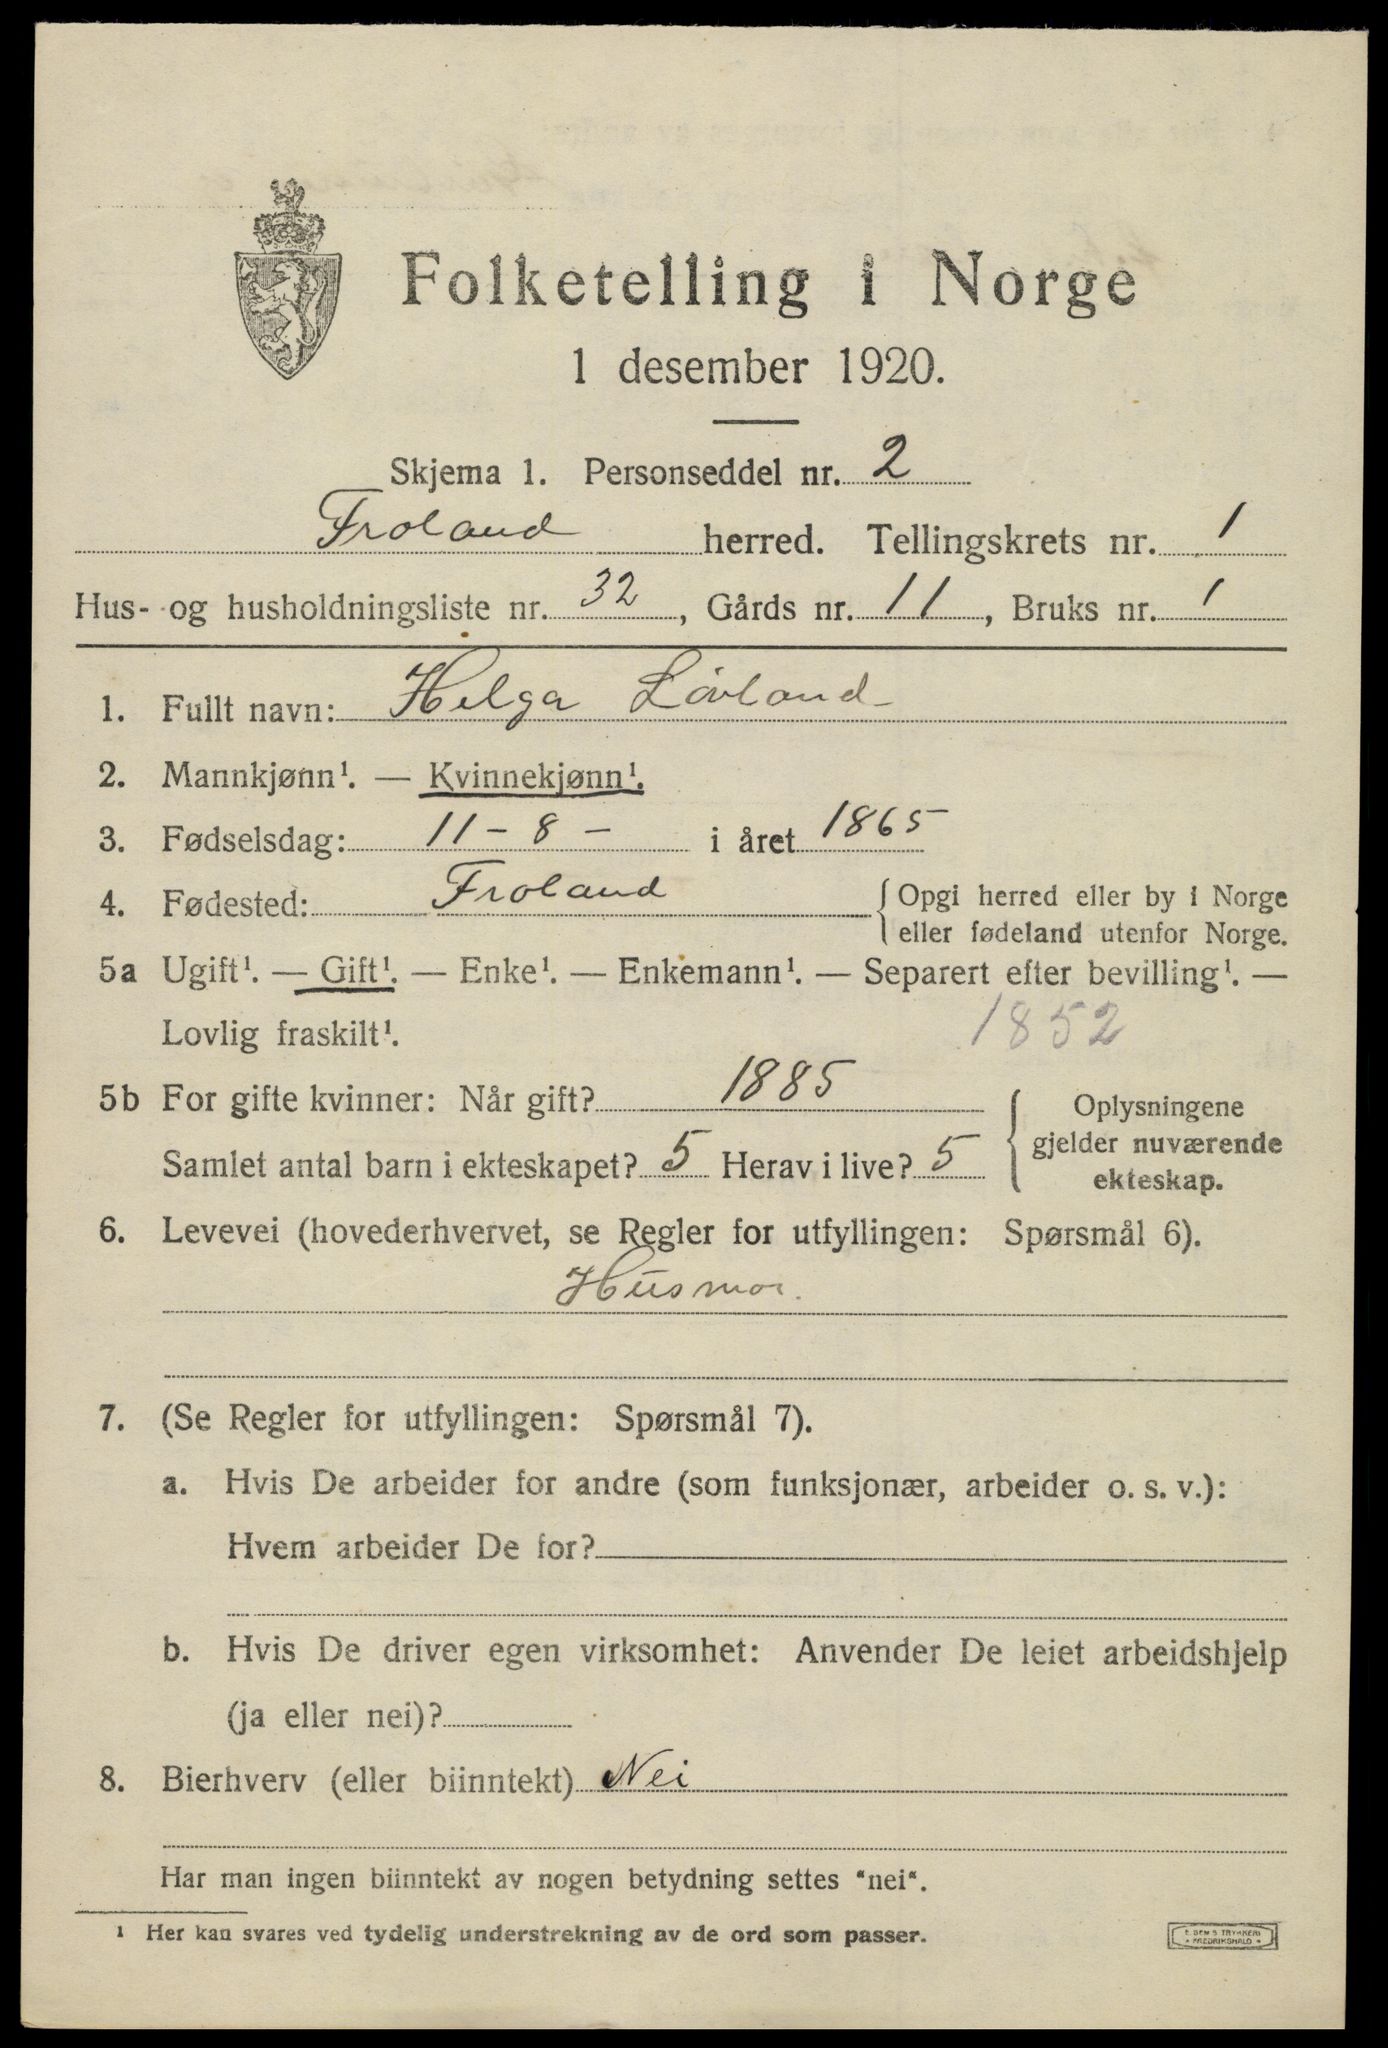 Folketelling i Norge
1 desember 1920.
Skjema 1. Personseddel nr. 2
Froland herred. Tellingskrets nr. 1
Hus- og husholdningsliste nr. 32, Gårds nr. 11, Bruks nr. 1
1. Fullt navn: Helga Lövland
2. Mannkjønn¹. — Kvinnekjønn¹.
3. Fødselsdag: 11 - 8 - i året 1865
4. Fødested: Froland { Opgi herred eller by i Norge
eller fødeland utenfor Norge.
5a Ugift¹. — Gift¹. — Enke¹. — Enkemann¹. — Separert efter bevilling¹. —
Lovlig fraskilt¹. 1852
5b For gifte kvinner: Når gift? 1885 { Oplysningene
gjelder nuværende
Samlet antal barn i ekteskapet? 5 Herav i live? 5
ekteskap.
6. Levevei (hovederhvervet, se Regler for utfyllingen: Spørsmål 6).
Husmor.
7. (Se Regler for utfyllingen: Spørsmål 7).
a. Hvis De arbeider for andre (som funksjonær, arbeider o. s. v.):
Hvem arbeider De for?
b. Hvis De driver egen virksomhet: Anvender De leiet arbeidshjelp
(ja eller nei)?
8. Bierhverv (eller biinntekt) Nei
Har man ingen biinntekt av nogen betydning settes "nei".
¹ Her kan svares ved tydelig understrekning av de ord som passer.
TRYKKERI
FREDRIKSHALD